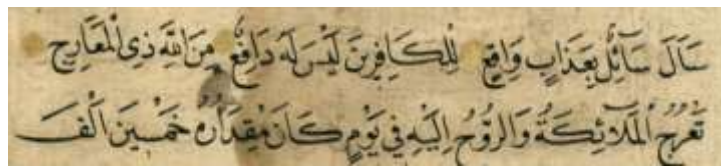 سَاَلَ سَآئِلٌ بِعَذَابٍ وَاقِعٍ لِلْكَافِرِينَ لَيْسَ لَهُ دَافِعٌ مِنَ اللَّهِ ذِي الْمَعَارِجِ
تَعْرُجُ الْمَلَآئِكَةُ وَالرُّوحُ اِلَيْهِ فِي يَوْمٍ كَانَ مِقْدَارُهُ خَمْسِينَ اَلْفَ